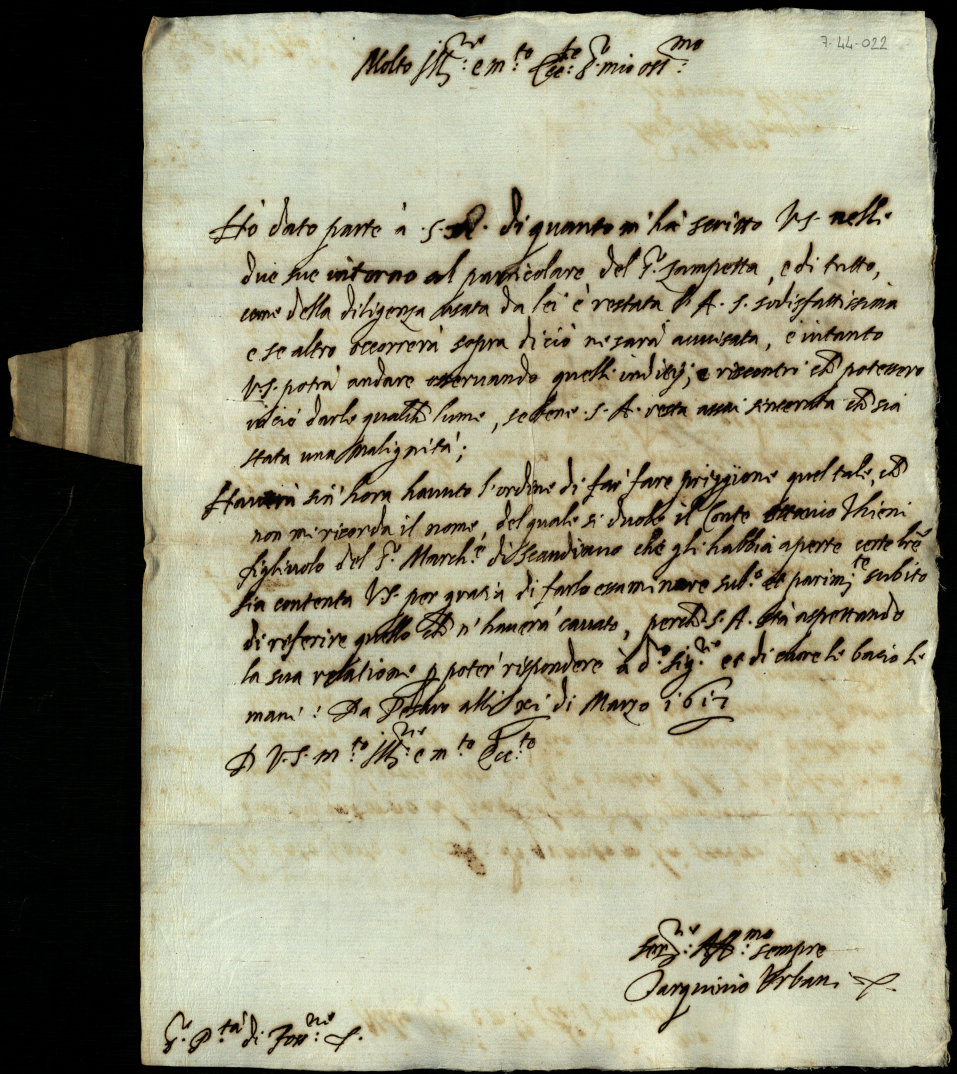 7-44-022
Molto Ill:re e m:to Ecc:te S.r mio oss:mo
Hò dato parte à .S.A. di quanto m'hà scritto V.S. nelle
due sue intorno al particolare del S.r Zampetta, e di tutto,
come della diligenza usata da lei è restata l'A. S. sodisfattissima
e se altro occorrerà sopra di ciò ne sarà avvisata, e intanto
V.S. potrà andare osservando quelli inditij, e riscontri ch potessero
in ciò darle qualch lume, se bene .S.A. resta assai sincerata ch sia
stata una malignità;
Haverà sin'hora havuto l'ordine di far fare priggione quel tale, ch
non mi ricorda il nome, del quale si duole il Conte Ottavio Thieni
figlivolo del S.r March.e di Scandiano che gli habbia aperte certe l're
sia contenta V.S. per gratia di farlo essaminare sub.o et parim.te subito
di referire quello ch n'haverà cavato, perch .S.A. stà aspettando
la sua relatione p poter rispondere à d.o Sig.re et di cuore le bacio le
mani: Da Pesaro alli xi di Marzo 1617
D V.S. m:to Ill:re e m:to Ecc:te
Ser:re Aff:mo sempre
Tarquinio Urbani
S.r P:tà di Foss:ne